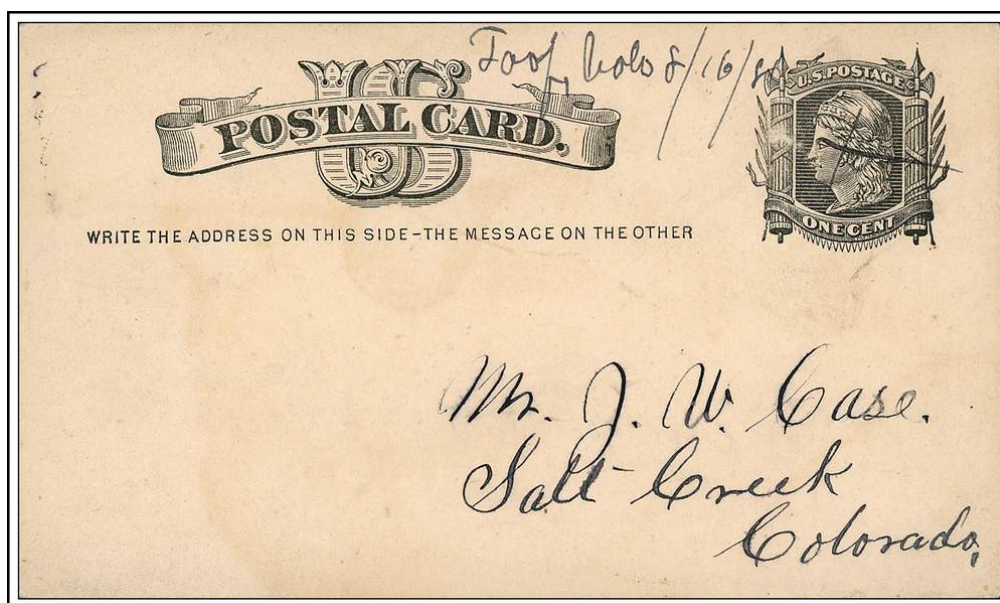 Toof Colo 8/16/8
U.S. POSTAGE
US
POSTAL CARD.
ONE CENT
WRITE THE ADDRESS ON THIS SIDE-THE MESSAGE ON THE OTHER
Mr. J. W. Case.
Salt Creek
Colorado,